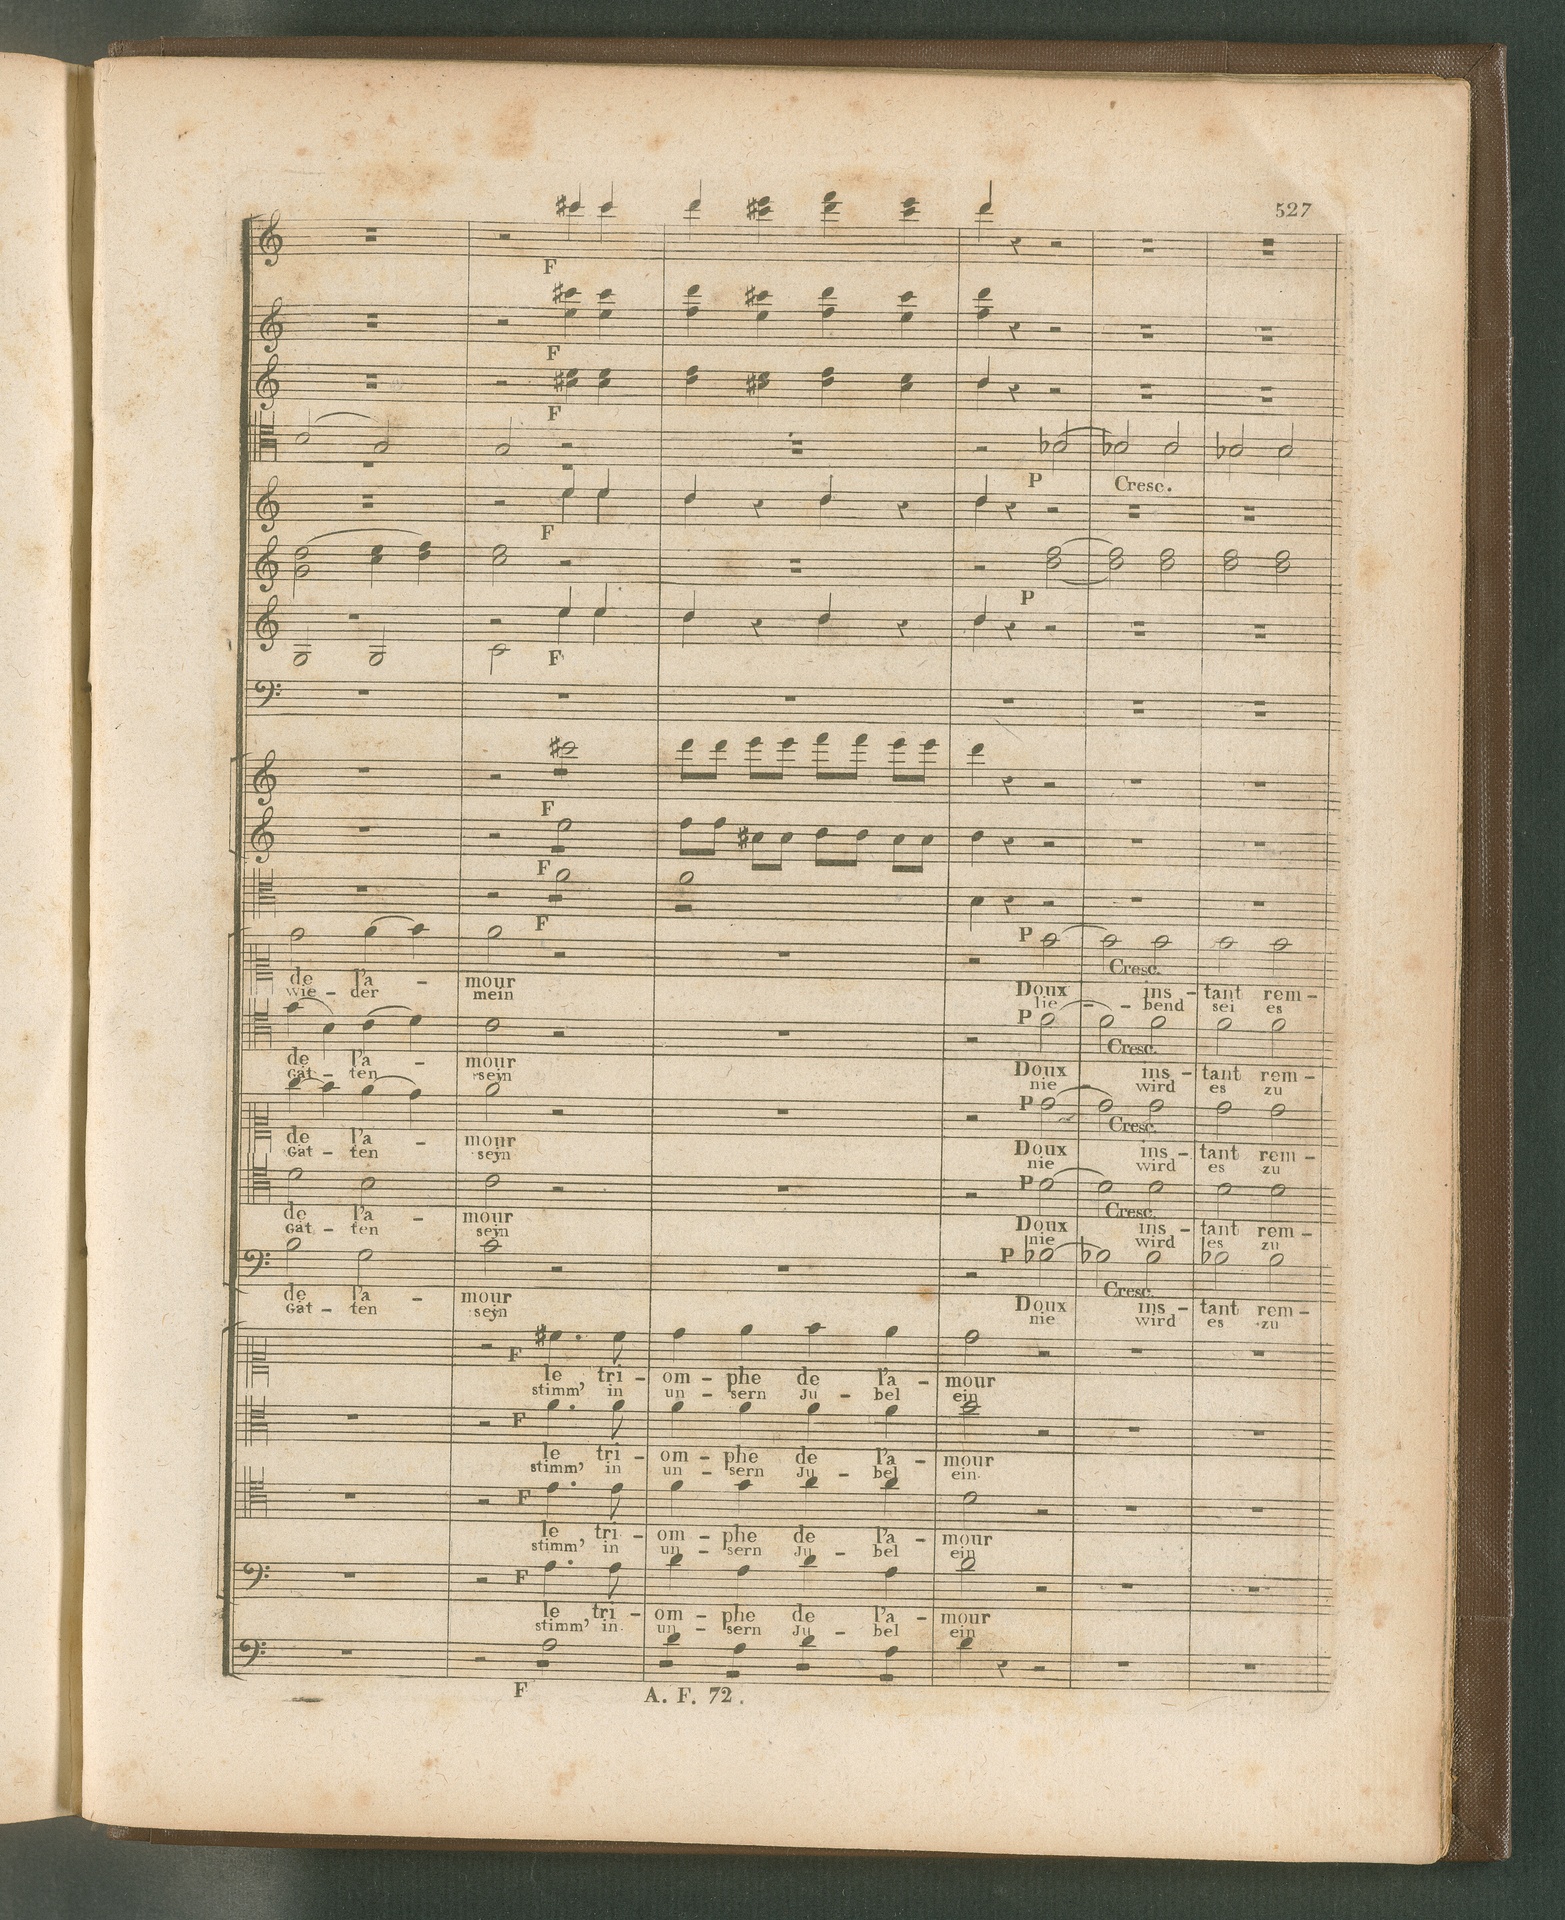 527
F
F
F
P Cresc.
F
P
F
F
F
F
P Cresc.
de l'a - mour Doux ins - tant rem -
wie - der mein lie - - bend sei es
P Cresc.
de l'a - mour Doux ins - tant rem -
Gat - ten seyn nie - wird es zu
P Cresc.
de l'a - mour Doux ins - tant rem -
Gat - ten seyn nie wird es zu
P Cresc.
de l'a - mour Doux ins - tant rem -
Gat - ten seyn nie wird es zu
P Cresc.
de l'a - mour Doux ins - tant rem -
Gat - ten seyn nie wird es zu
F
le tri - om - phe de l'a - mour
stimm' in un - sern Ju - bel ein
F
le tri - om - phe de l'a - mour
stimm' in un - sern Ju - bel ein.
F
le tri - om - phe de l'a - mour
stimm' in un - sern Ju - bel ein
F
le tri - om - phe de l'a - mour
stimm' in un - sern Ju - bel ein
F
A. F. 72.